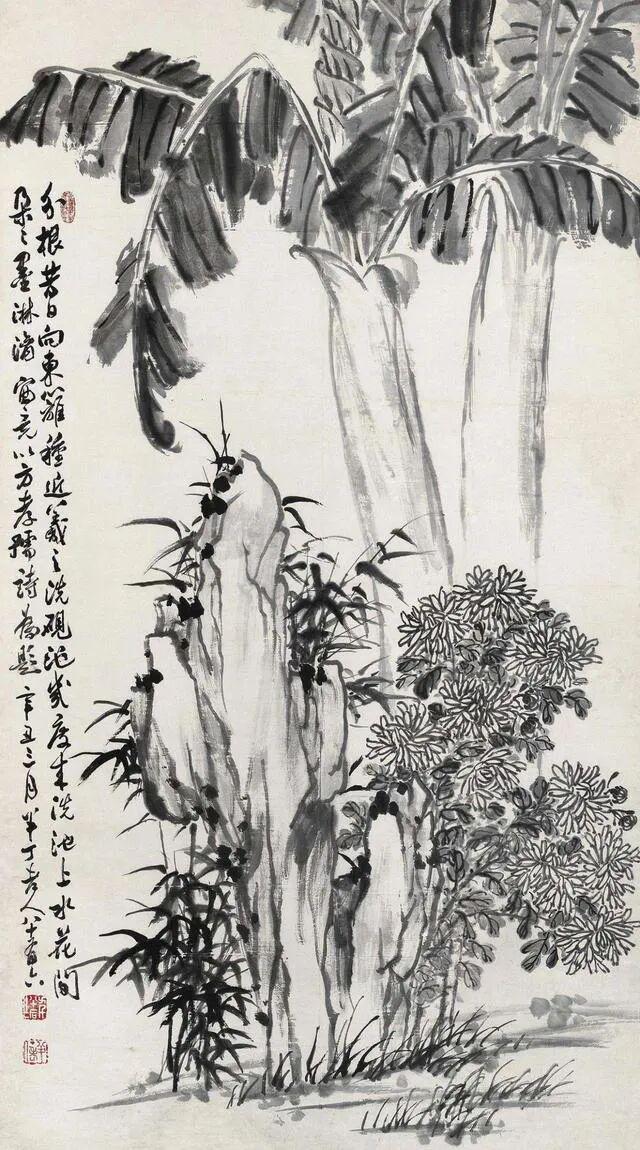 分根昔日向東籬種近羲之洗硯池幾度來洗池上水花間
朵〻墨淋漓寫竟以方孝孺詩為題辛丑三月半丁老人八十有六